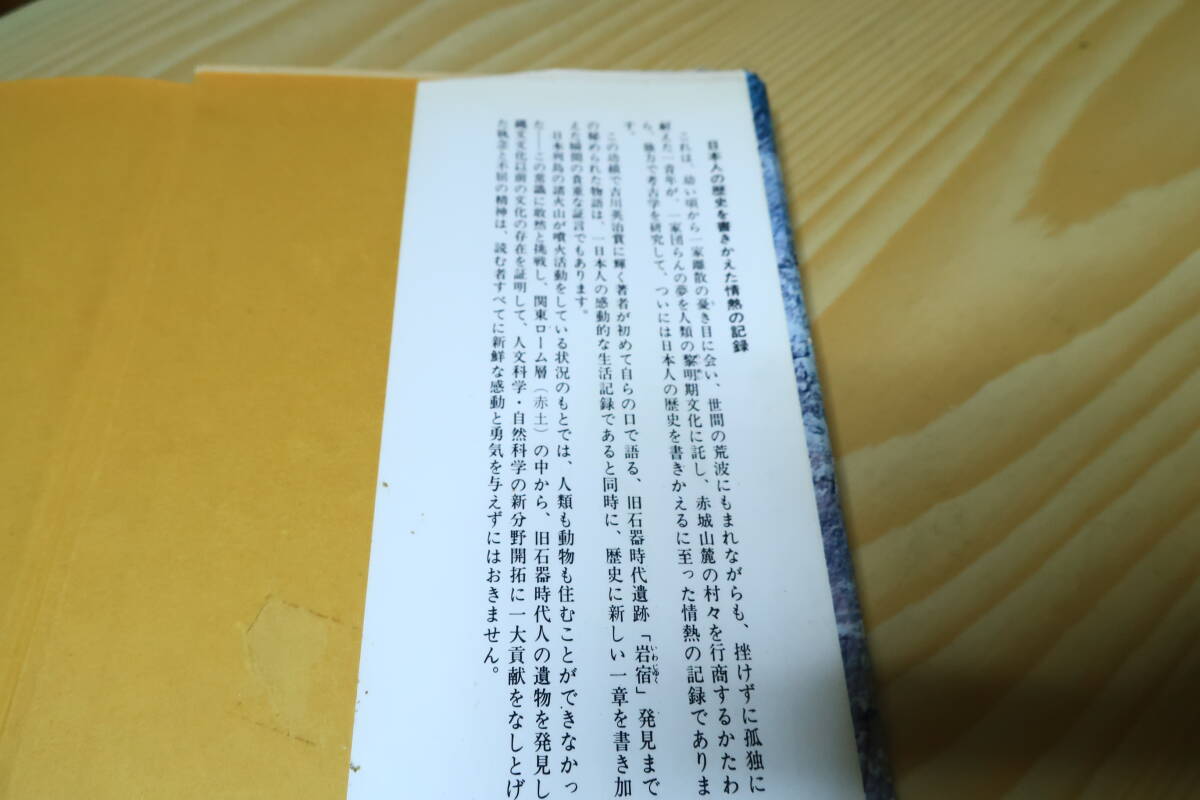 日本人の歴史を書きかえた情熱の記録
これは、幼い頃から一家離散の憂き目に会い、世間の荒波にもまれながらも、挫けずに孤独に
耐えた一青年が、一家団らんの夢を人類の黎明期文化に託し、赤城山麓の村々を行商するかたわ
ら、独力で考古学を研究して、ついには日本人の歴史を書きかえるに至った情熱の記録でありま
す。
この功績で吉川英治賞に輝く著者が初めて自らの口で語る、旧石器時代遺跡「岩宿」発見まで
の秘められた物語は、一日本人の感動的な生活記録であると同時に、歴史に新しい一章を書き加
えた瞬間の貴重な証言でもあります。
日本列島の諸火山が噴火活動をしている状況のもとでは、人類も動物も住むことができなかっ
た――この常識に敢然と挑戦し、関東ローム層（赤土）の中から、旧石器時代人の遺物を発見し
縄文文化以前の文化の存在を証明して、人文科学・自然科学の新分野開拓に一大貢献をなしとげ
た執念と不屈の精神は、読む者すべてに新鮮な感動と勇気を与えずにはおきません。